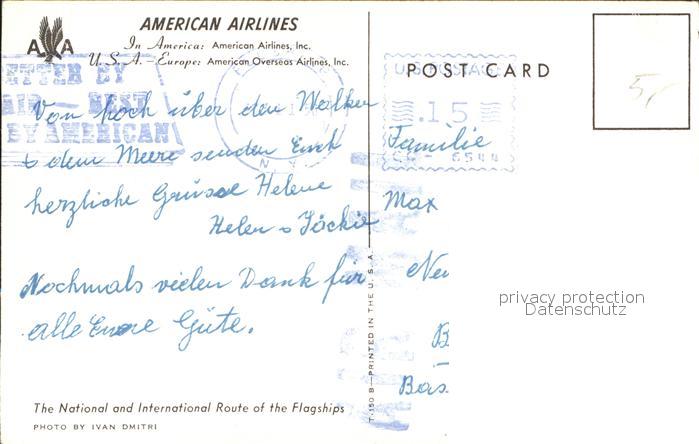 AMERICAN AIRLINES
AA
In America: American Airlines, Inc.
U.S.A.–Europe: American Overseas Airlines, Inc.
POST CARD
5,
LETTER BY
AIR — BEST
BY AMERICAN
N.Y.
U.S. POSTAGE
.15
6544
Von hoch über den Wolken
& dem Meere senden Euch
herzliche Grüsse Helene
Helen & Jackie
Nochmals vielen Dank für
alle Eure Güte.
Familie
Max
privacy protection
Datenschutz
Bas
The National and International Route of the Flagships
PHOTO BY IVAN DMITRI
T-150 B—PRINTED IN THE U.S.A.